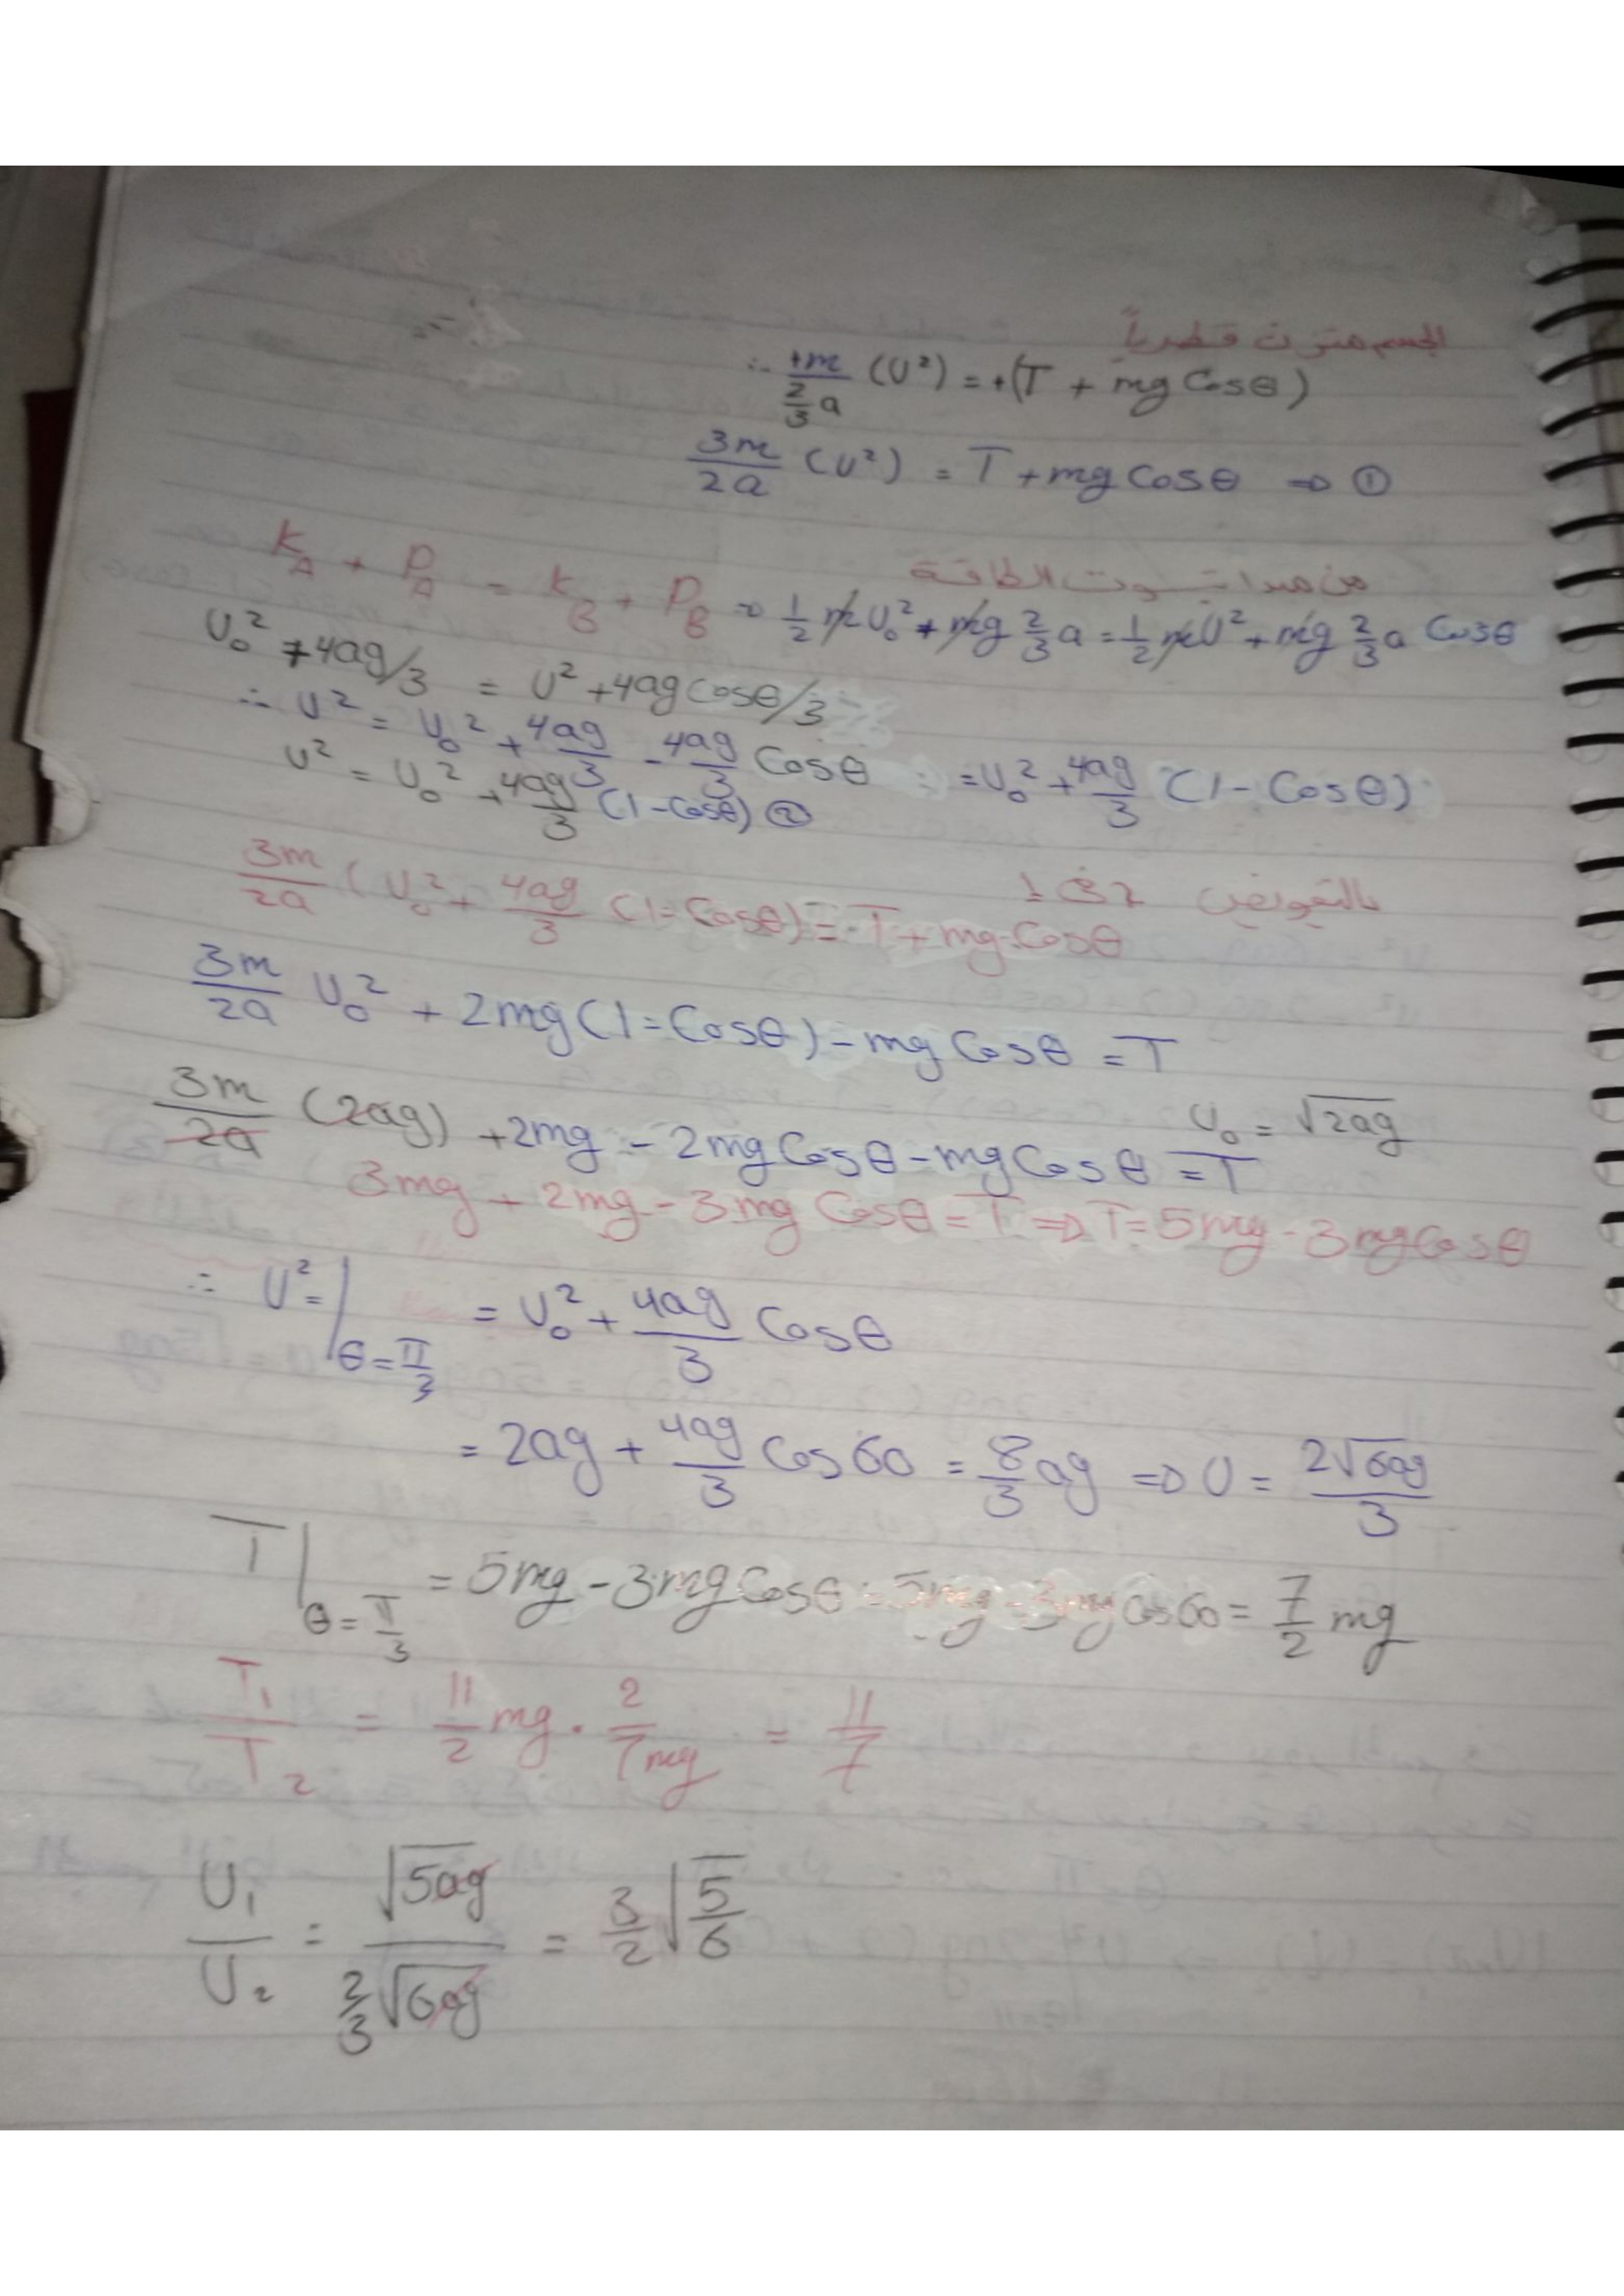 الجسم متزن قطرياً
∴ +m/(2/3 a) (U²) = +(T + mg Cosθ)
3m/2a (U²) = T + mg Cosθ ⇒ ①
من مبدا ثبوت الطاقة
K_A + P_A = K_B + P_B ⇒ 1/2 m U₀² + mg 2/3 a = 1/2 m U² + mg 2/3 a Cosθ
U₀² + 4ag/3 = U² + 4ag Cosθ/3
∴ U² = U₀² + 4ag/3 - 4ag/3 Cosθ = U₀² + 4ag/3 (1 - Cosθ)
U² = U₀² + 4ag/3 (1 - Cosθ) ②
بالتعويض 2 في 1
3m/2a (U₀² + 4ag/3 (1 = Cosθ) = T + mg Cosθ
3m/2a U₀² + 2mg (1 = Cosθ) - mg Cosθ = T
U₀ = √2ag
3m/2a (2ag) + 2mg - 2mg Cosθ - mg Cosθ = T
3mg + 2mg - 3mg Cosθ = T ⇒ T = 5mg - 3mg Cosθ
∴ U² = |θ = π/3 = U₀² + 4ag/3 Cosθ
= 2ag + 4ag/3 Cos 60 = 8/3 ag ⇒ U = 2√6ag/3
T |θ = π/3 = 5mg - 3mg Cosθ = 5mg - 3mg Cos 60 = 7/2 mg
T₁/T₂ = 11/2 mg . 2/7mg = 11/7
U₁/U₂ = √5ag / 2/3 √6ag = 3/2 √5/6